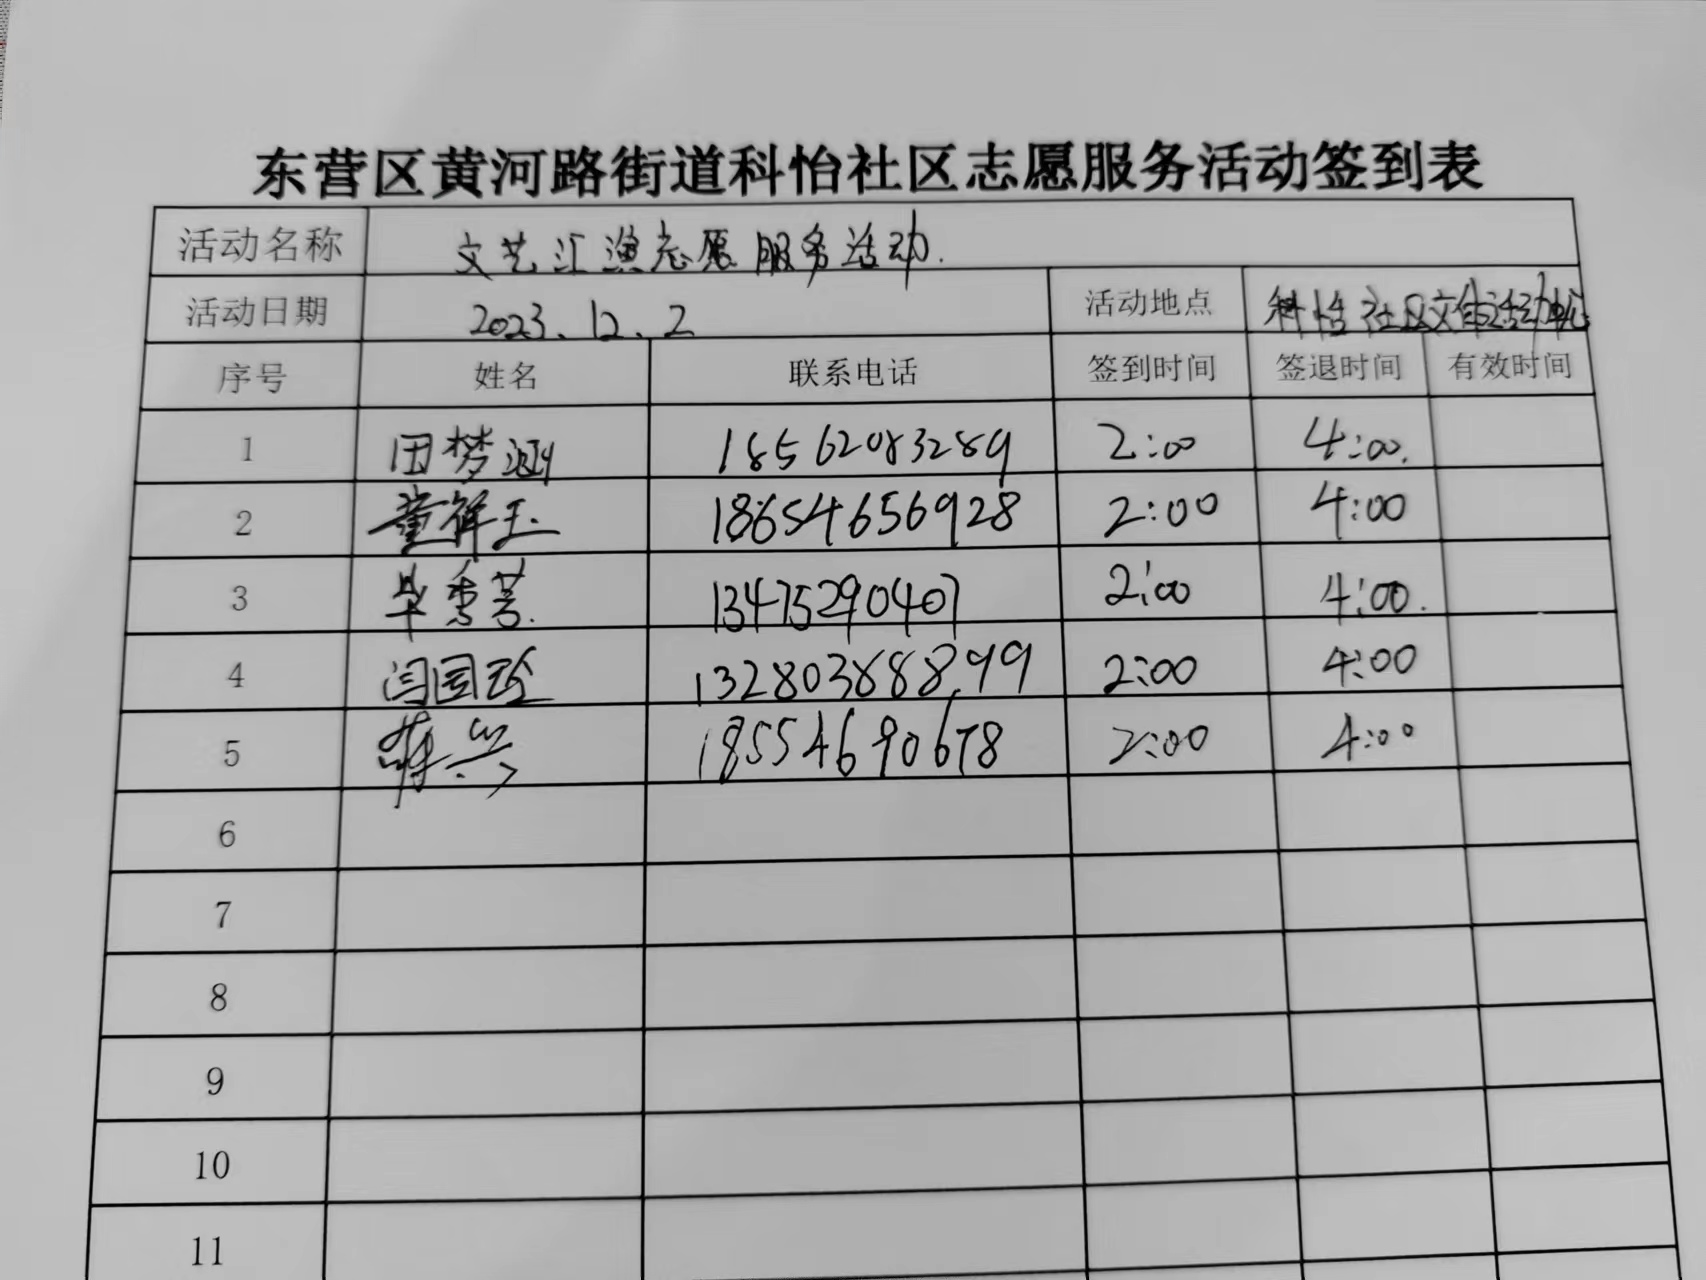 东营区黄河路街道科怡社区志愿服务活动签到表
活动名称 文艺汇演志愿服务活动.
活动日期 2023.12.2 活动地点 科怡社区文体活动中心
序号 姓名 联系电话 签到时间 签退时间 有效时间
1 田梦涵 18562083289 2:00 4:00.
2 董祥玉 18654656928 2:00 4:00
3 毕秀芳. 13475290407 2:00 4:00.
4 闫国玲 13280388899 2:00 4:00
5 18554690678 2:00 4:00
6
7
8
9
10
11